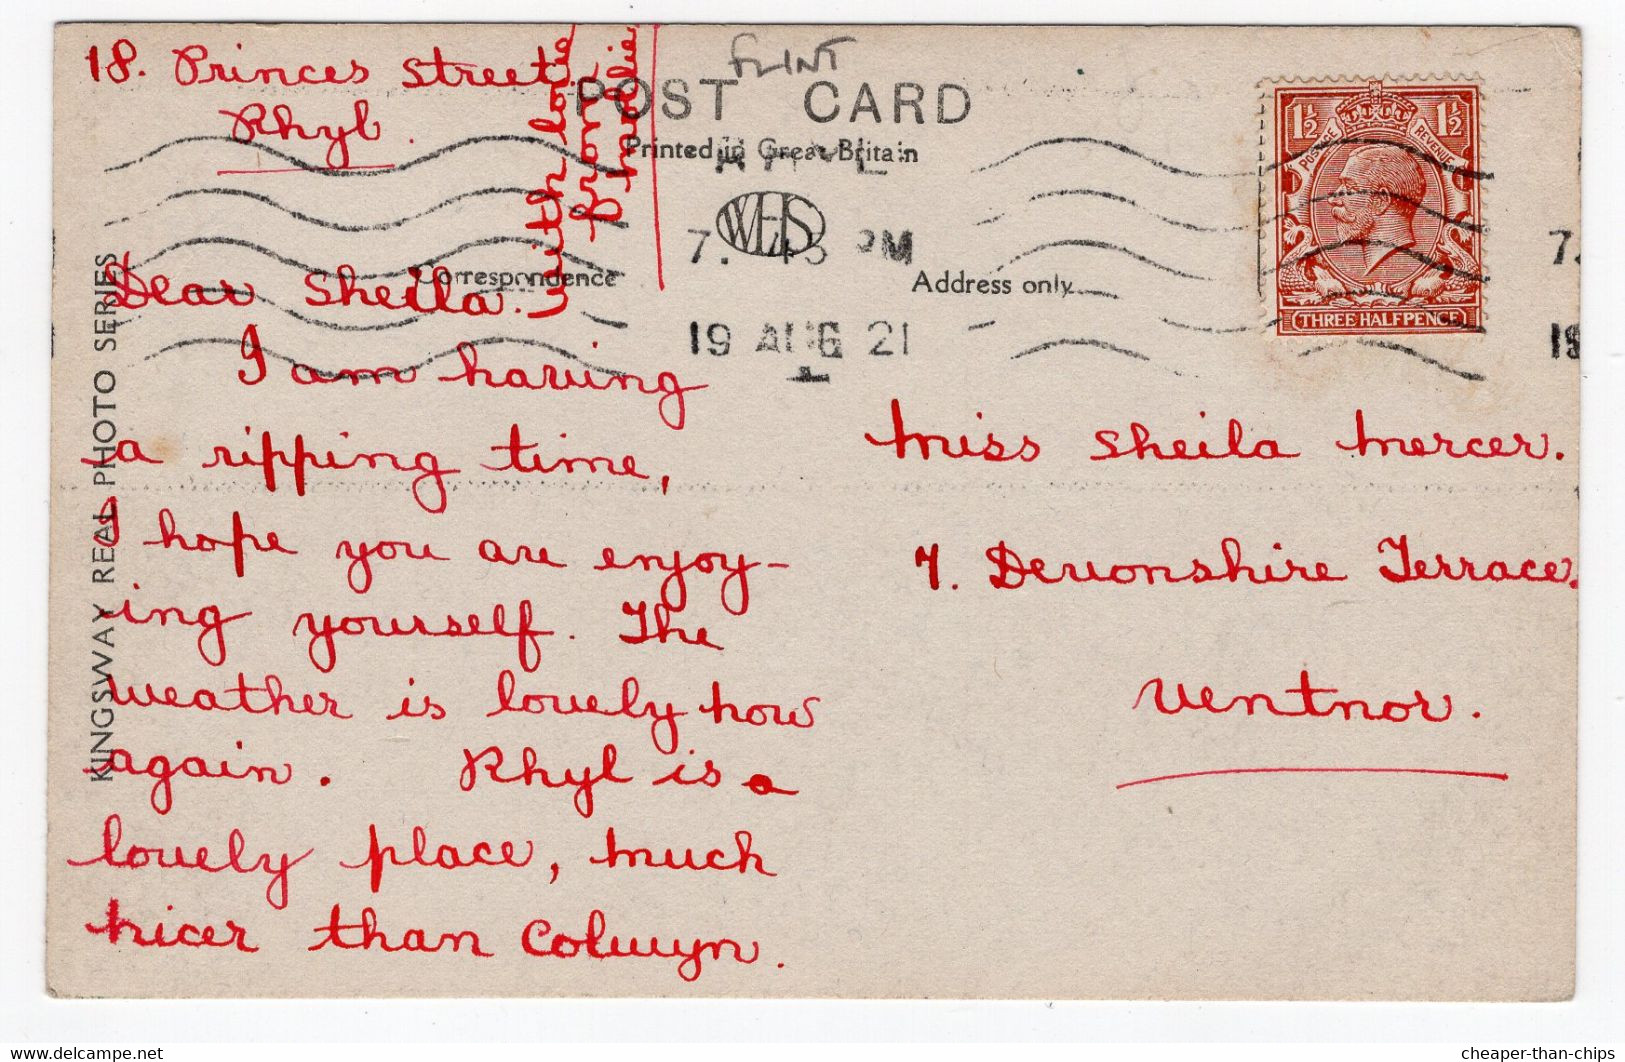 18. Princes Street.
Rhyl.
with love
from
mollie
FLINT
POST CARD
Printed in Great Britain
WHS
Correspondence
Address only
7. 45 PM
19 AUG 21
1½ 1½
POSTAGE REVENUE
THREE HALFPENCE
KINGSWAY REAL PHOTO SERIES
Dear Sheila.
I am having
a ripping time,
I hope you are enjoy-
ing yourself. The
weather is lovely now
again. Rhyl is a
lovely place, much
nicer than Colwyn.
Miss Sheila Mercer.
7. Devonshire Terrace.
Ventnor.
cheaper-than-chips
www.delcampe.net